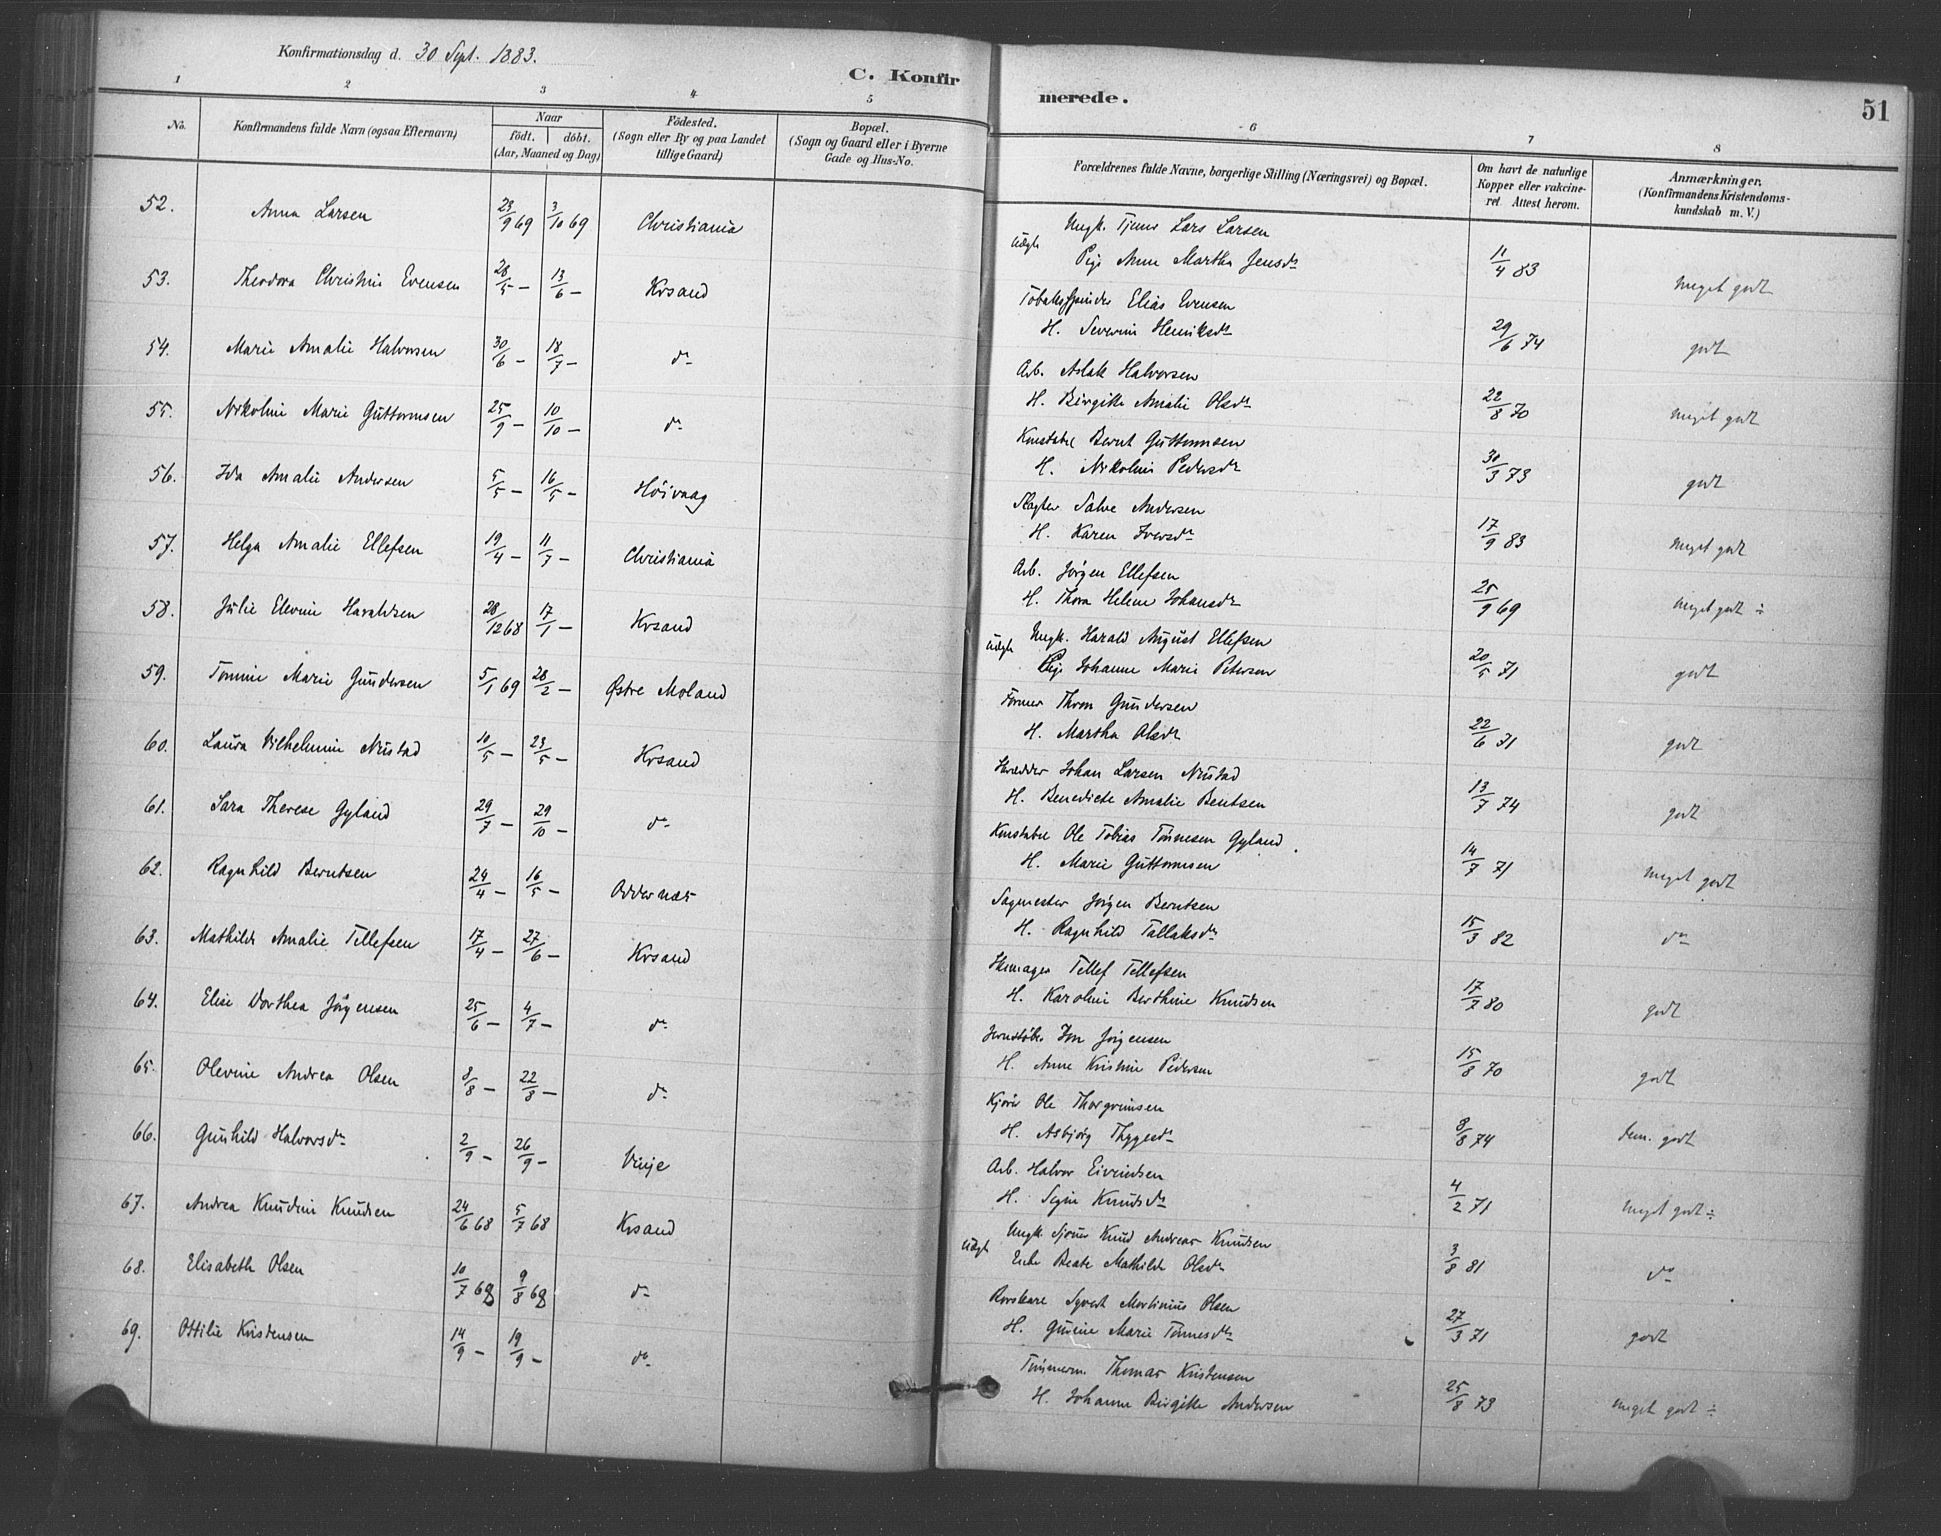 Konfirmationsdag d. 30 Sept. 1883.
C. Konfirmerede.
51
1 2 3 4 5 6 7 8
No.
Konfirmandens fulde Navn (ogsaa Efternavn)
Naar
født. døbt.
(Aar, Maaned og Dag)
Fødested.
(Sogn eller By og paa Landet
tillige Gaard)
Bopæl.
(Sogn og Gaard eller i Byerne
Gade og Hus-No.
Forældrenes fulde Navne, borgerlige Stilling (Næringsvei) og Bopæl.
Om havt de naturlige
Kopper eller vakcine-
ret Attest herom.
Anmærkninger.
(Konfirmandens Kristendoms-
kundskab m. V.)
52. Anna Larsen 23/9 69 3/10 69 Christiania Uægte Ungk. Tjener Lars Larsen
Pige Anne Martha Jensdr 11/4 83 meget godt
53. Theodora Christine Evensen 28/5 – 13/6 – Krsand Tobaksspinder Elias Evensen
H. Severine Henriksdr 29/6 74 godt
54. Marie Amalie Halvorsen 30/6 – 18/7 – do Arb. Aslak Halvorsen
H. Birgitte Amalie Olsdr 22/8 70 meget godt
55. Nikoline Marie Guttormsen 25/9 – 10/10 – do Konstabel Bernt Guttormsen
H. Nikoline Pedersdr 30/3 73 godt
56. Ida Amalie Andersen 5/5 – 16/5 – Høivaag Slagter Salve Andersen
H. Karen Iversdr 17/9 83 meget godt
57. Helga Amalie Ellefsen 19/4 – 11/7 – Christiania Arb. Jørgen Ellefsen
H. Thora Helene Johansdr 25/9 69 meget godt ÷
58. Julie Elevine Haraldsen 28/12 68 17/1 – Krsand Uægte Ungk. Harald August Ellefsen
Pige Johanne Marie Petersen 20/5 71 godt
59. Tomine Marie Gundersen 5/1 69 28/2 – Østre Moland Former Thron Gundersen
H. Martha Olsdr 22/6 71 godt
60. Laura Vilhelmine Nustad 10/5 – 23/5 – Krsand Skrædder Johan Larsen Nustad
H. Benedicte Amalie Bentsen 13/7 74 godt
61. Sara Therese Gyland 29/7 – 29/10 – do Konstabel Ole Tobias Tønnesen Gyland
H. Marie Guttormsen 14/7 71 meget godt
62. Ragnhild Berntsen 24/4 – 16/5 – Oddernæs Sagmester Jørgen Berntsen
H. Ragnhild Tallaksdr 15/3 82 do
63. Mathilde Amalie Tellefsen 17/4 – 27/6 – Krsand Skomager Tellef Tellefsen
H. Karoline Berthine Knudsen 17/7 80 godt
64. Elise Dorthea Jørgensen 25/6 – 4/7 – do Jernstøber Jon Jørgensen
H. Anne Kristine Pedersen 15/8 70 godt
65. Olevine Andrea Olsen 8/8 – 22/8 – do Kjører Ole Thorgrimsen
H. Asbjørg Thygesdr 8/8 74 tem. godt
66. Gunhild Halvorsdr 2/9 – 26/9 – Vinje Arb. Halvor Eivindsen
H. Signe Knudsdr 4/2 71 meget godt ÷
67. Andrea Knudine Knudsen 24/6 68 5/7 68 Krsand Uægte Ungk. Sjøm. Knud Andreas Knudsen
Enke Beate Mathilde Olsdr 3/8 81 do
68. Elisabeth Olsen 10/7 69 9/8 69 do Rorskare Syvert Martinius Olsen
H. Gurine Marie Tønnesdr 27/3 71 godt
69. Ottilie Kristensen 14/9 – 19/9 – do Tømmerm. Thomas Kristensen
H. Johanne Birgitte Andersen 25/8 73 meget godt ÷